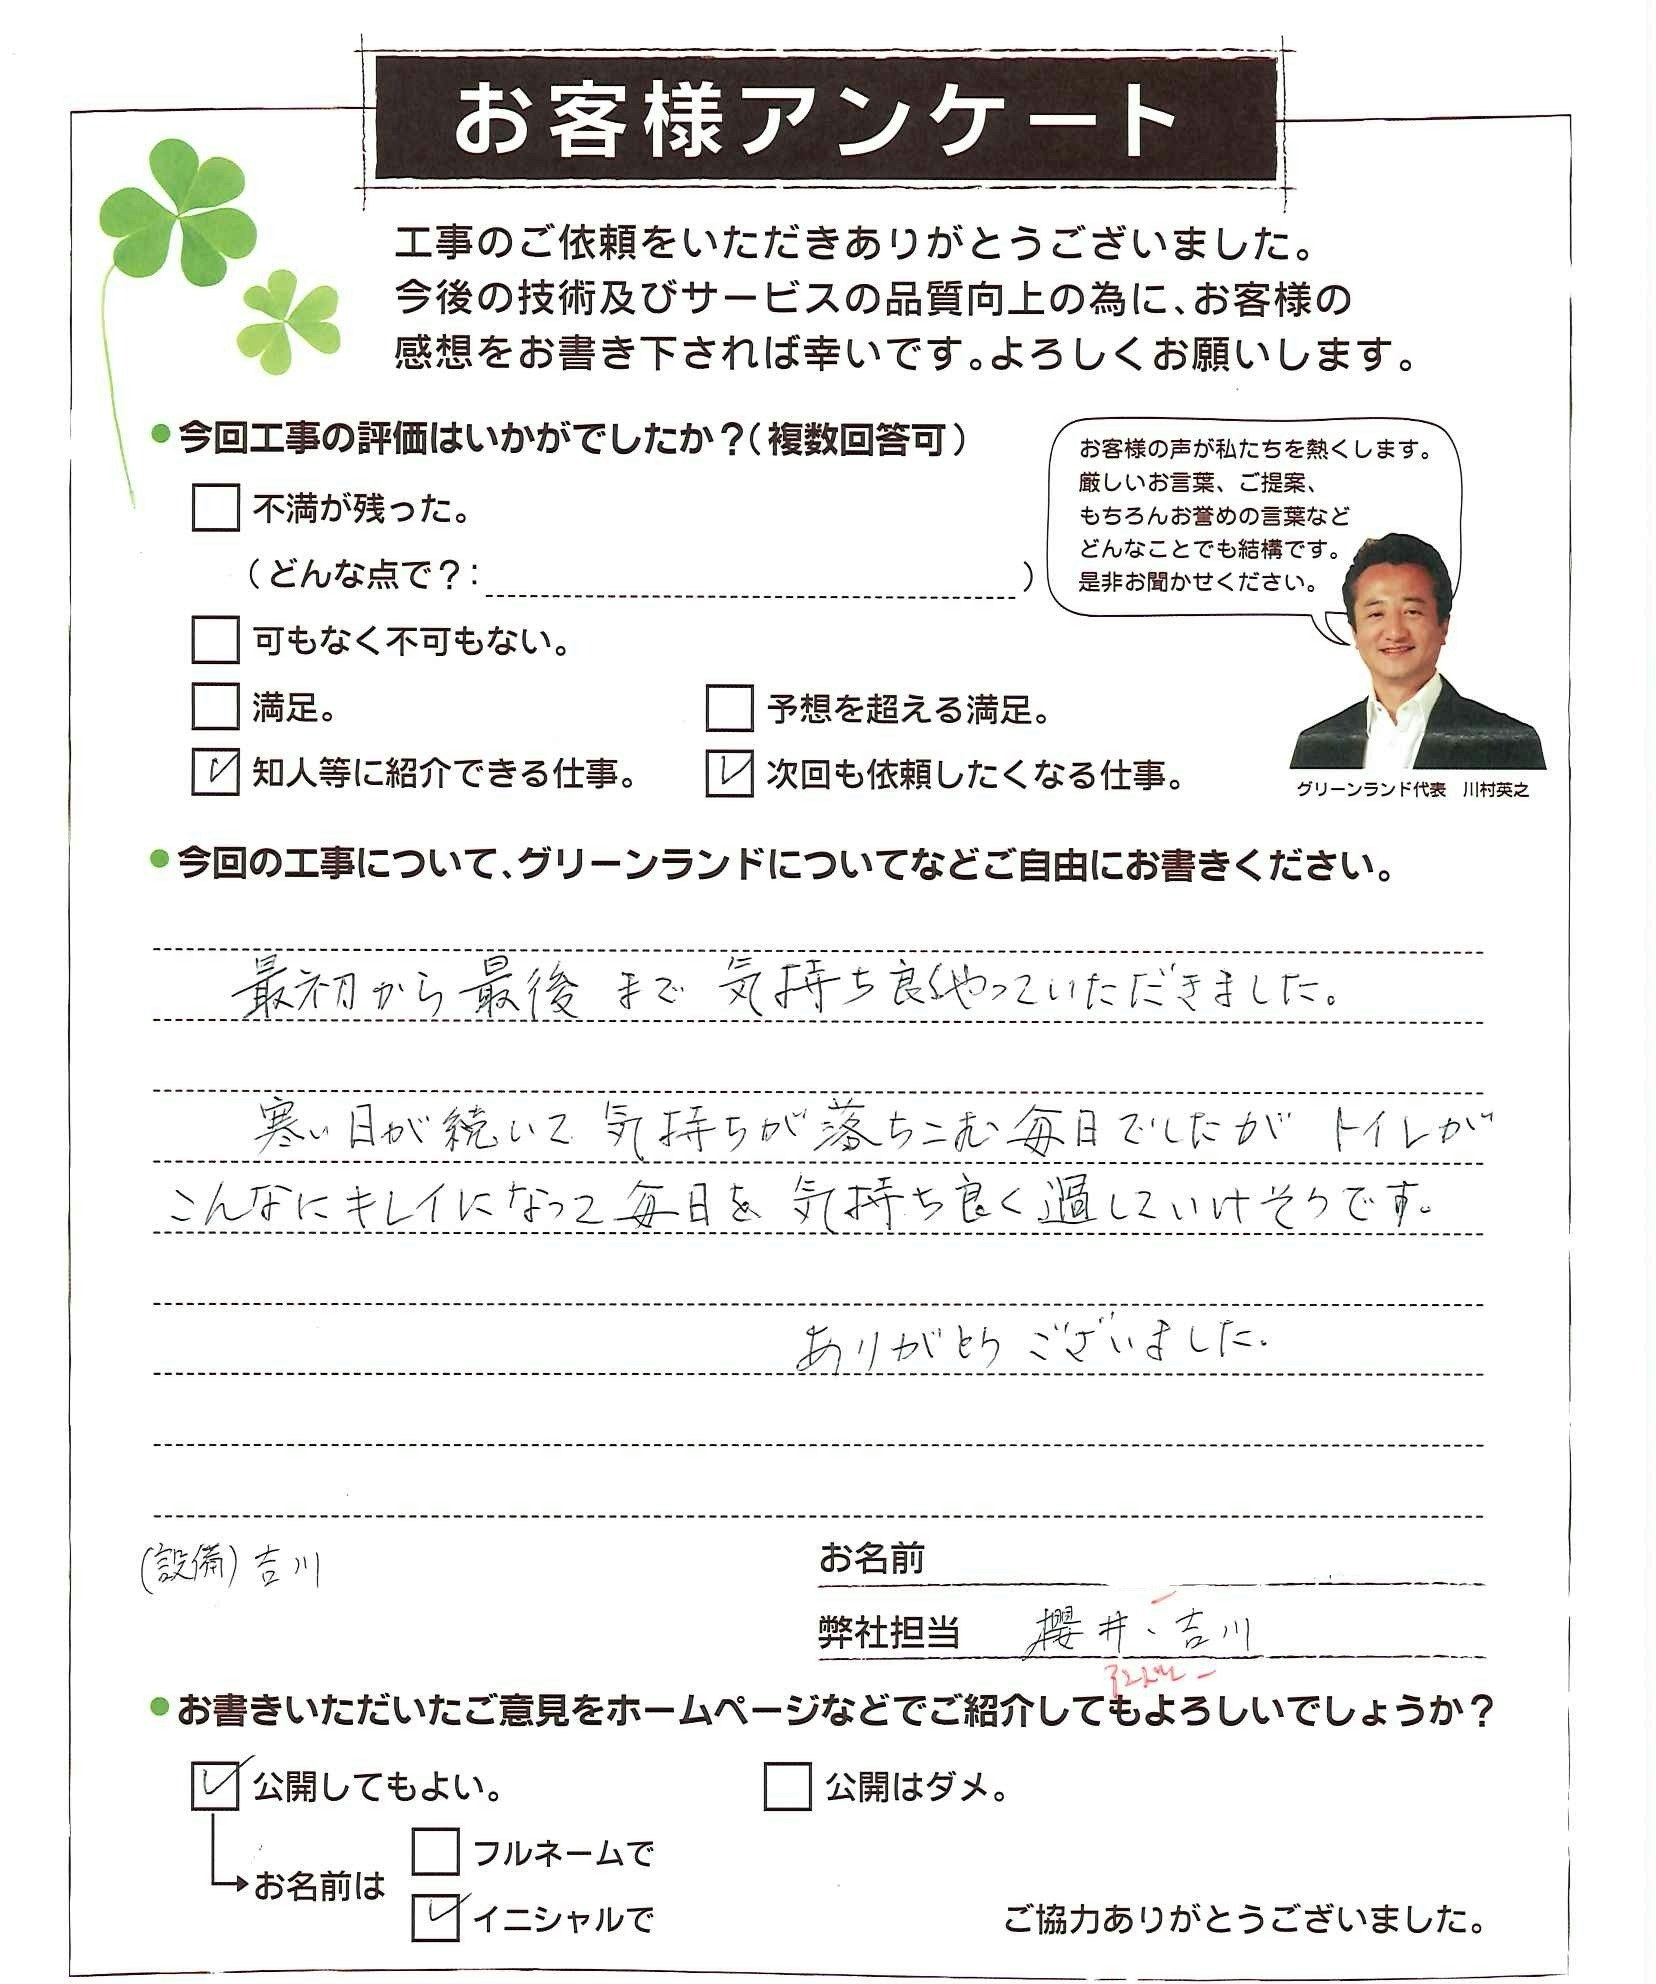 お客様アンケート
工事のご依頼をいただきありがとうございました。
今後の技術及びサービスの品質向上の為に、お客様の
感想をお書き下されば幸いです。よろしくお願いします。
●今回工事の評価はいかがでしたか?(複数回答可)
不満が残った。
(どんな点で?: )
可もなく不可もない。
満足。
予想を超える満足。
知人等に紹介できる仕事。
次回も依頼したくなる仕事。
お客様の声が私たちを熱くします。
厳しいお言葉、ご提案、
もちろんお誉めの言葉など
どんなことでも結構です。
是非お聞かせください。
グリーンランド代表 川村英之
●今回の工事について、グリーンランドについてなどご自由にお書きください。
最初から最後まで気持ち良くやっていただきました。
寒い日が続いて気持ちが落ちこむ毎日でしたがトイレが
こんなにキレイになって毎日を気持ち良く過していけそうです。
ありがとうございました。
(設備)吉川
お名前
弊社担当 櫻井、吉川
●お書きいただいたご意見をホームページなどでご紹介してもよろしいでしょうか?
公開してもよい。
公開はダメ。
お名前は
フルネームで
イニシャルで
ご協力ありがとうございました。